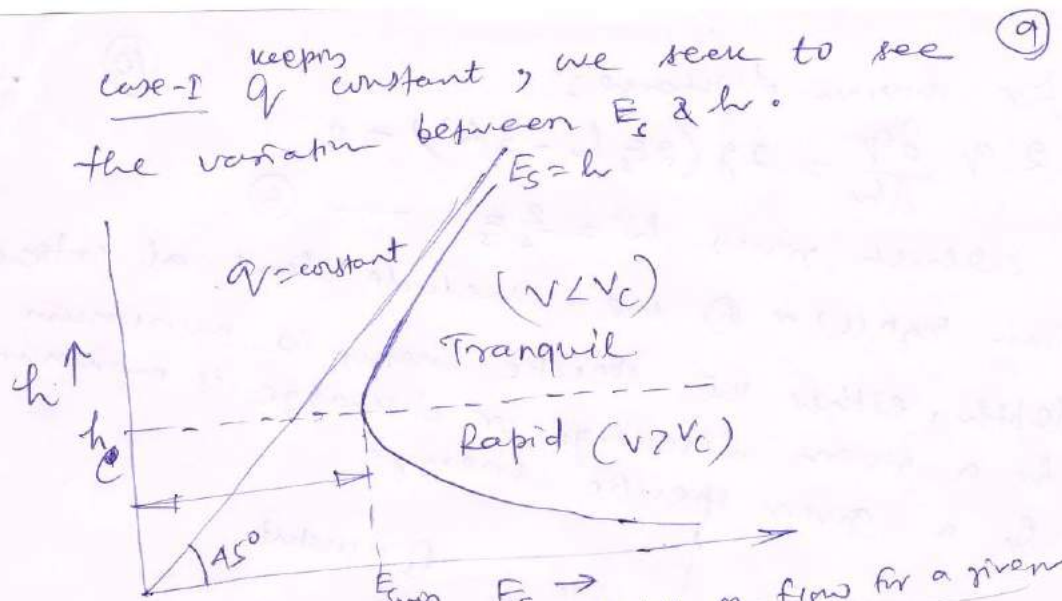 9
keeping
Case-I q constant, we seek to see
the variation between Es & h.
Es = h
q = constant
(V < Vc)
Tranquil
h ↑
hc
Rapid (V > Vc)
45°
Esmin Es →
flow for a given